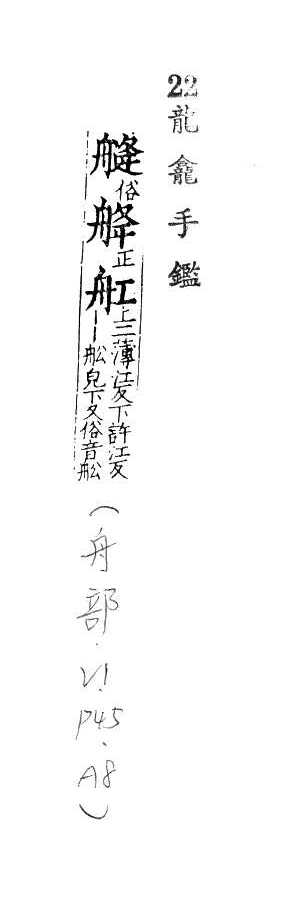 22龍龕手鑑
艂俗舽正舡上二薄江反下許江反
丨丨舩皃下又俗音舩
(舟部．V1．P45．A8)